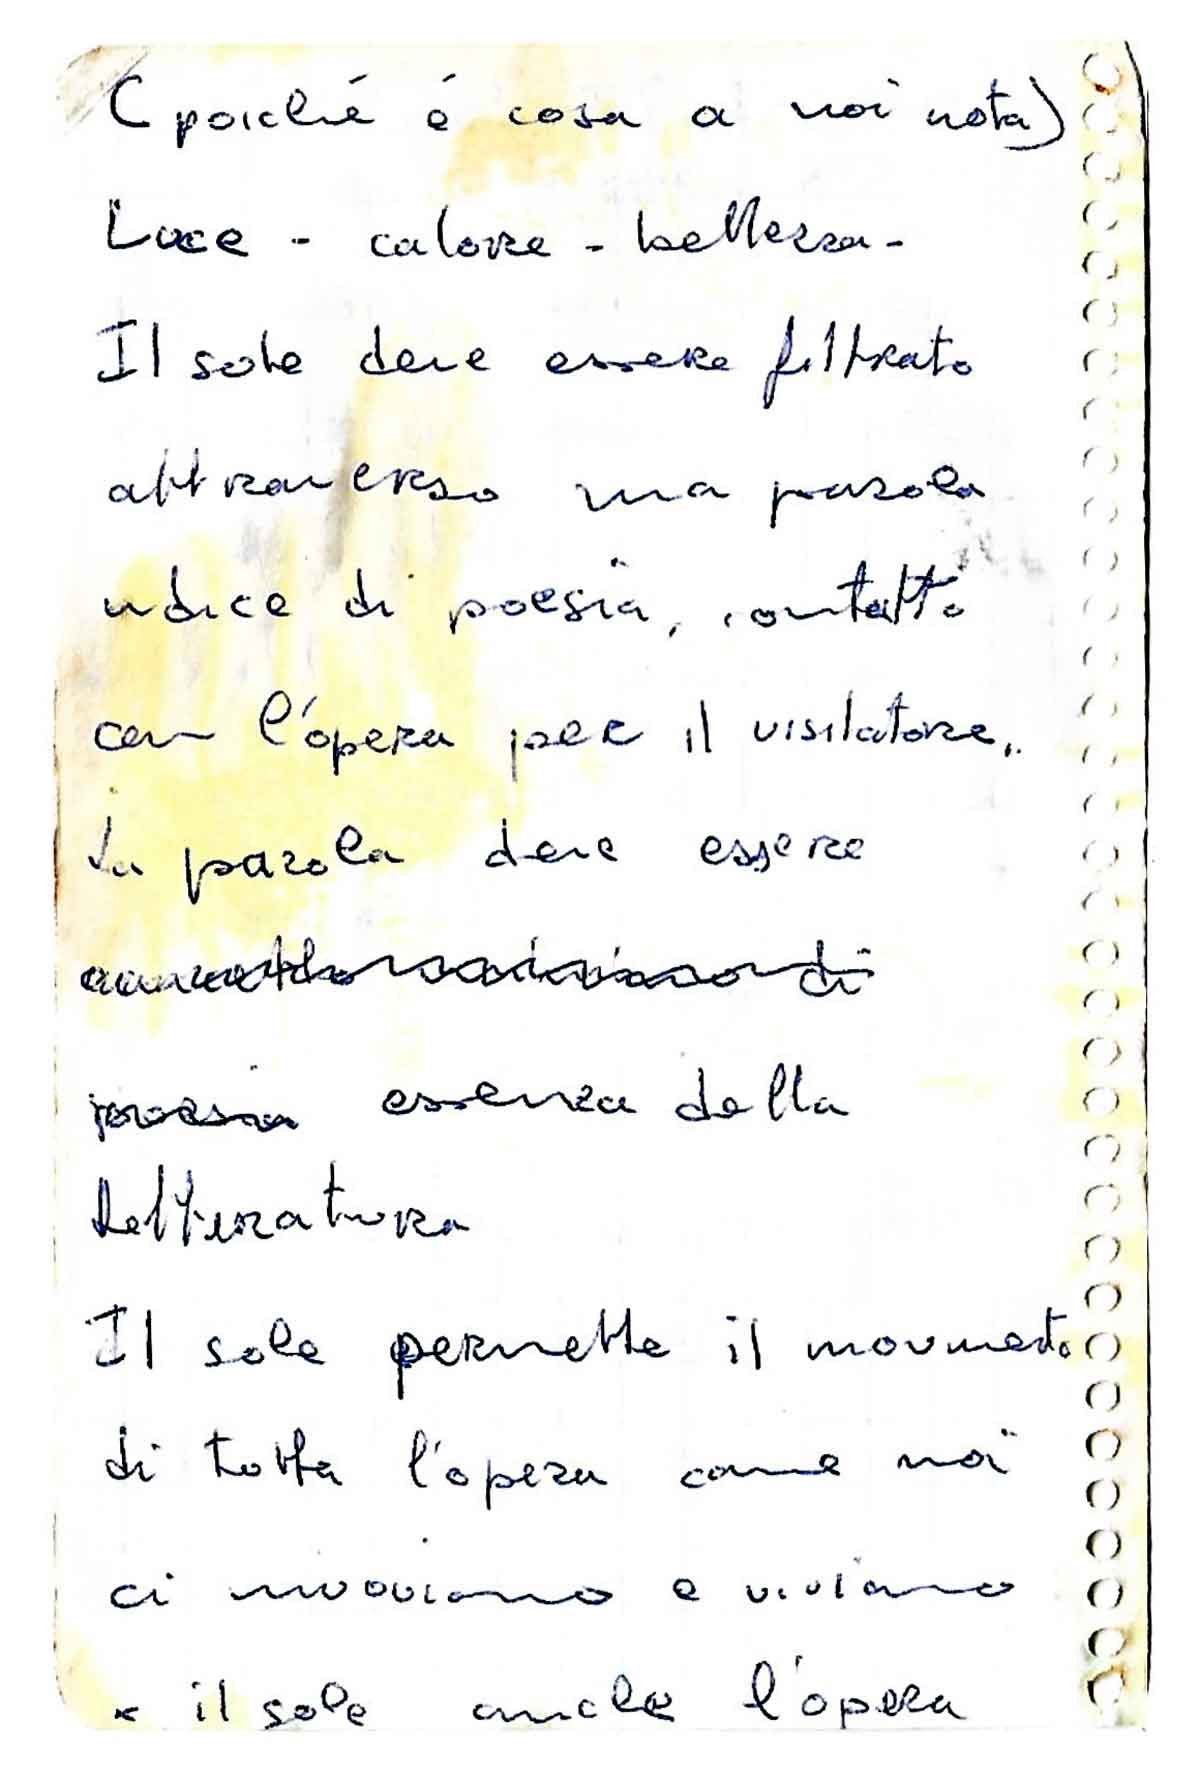 (poiché é cosa a noi nota)
Luce - calore - bellezza -
Il sole deve essere filtrato
attraverso una parola
indice di poesia, contatto
con l'opera per il visitatore.
La parola deve essere
di
poesia essenza della
letteratura
Il sole permette il movimento
di tutta l'opera come noi
ci muoviamo e viviamo
il sole anche l'opera